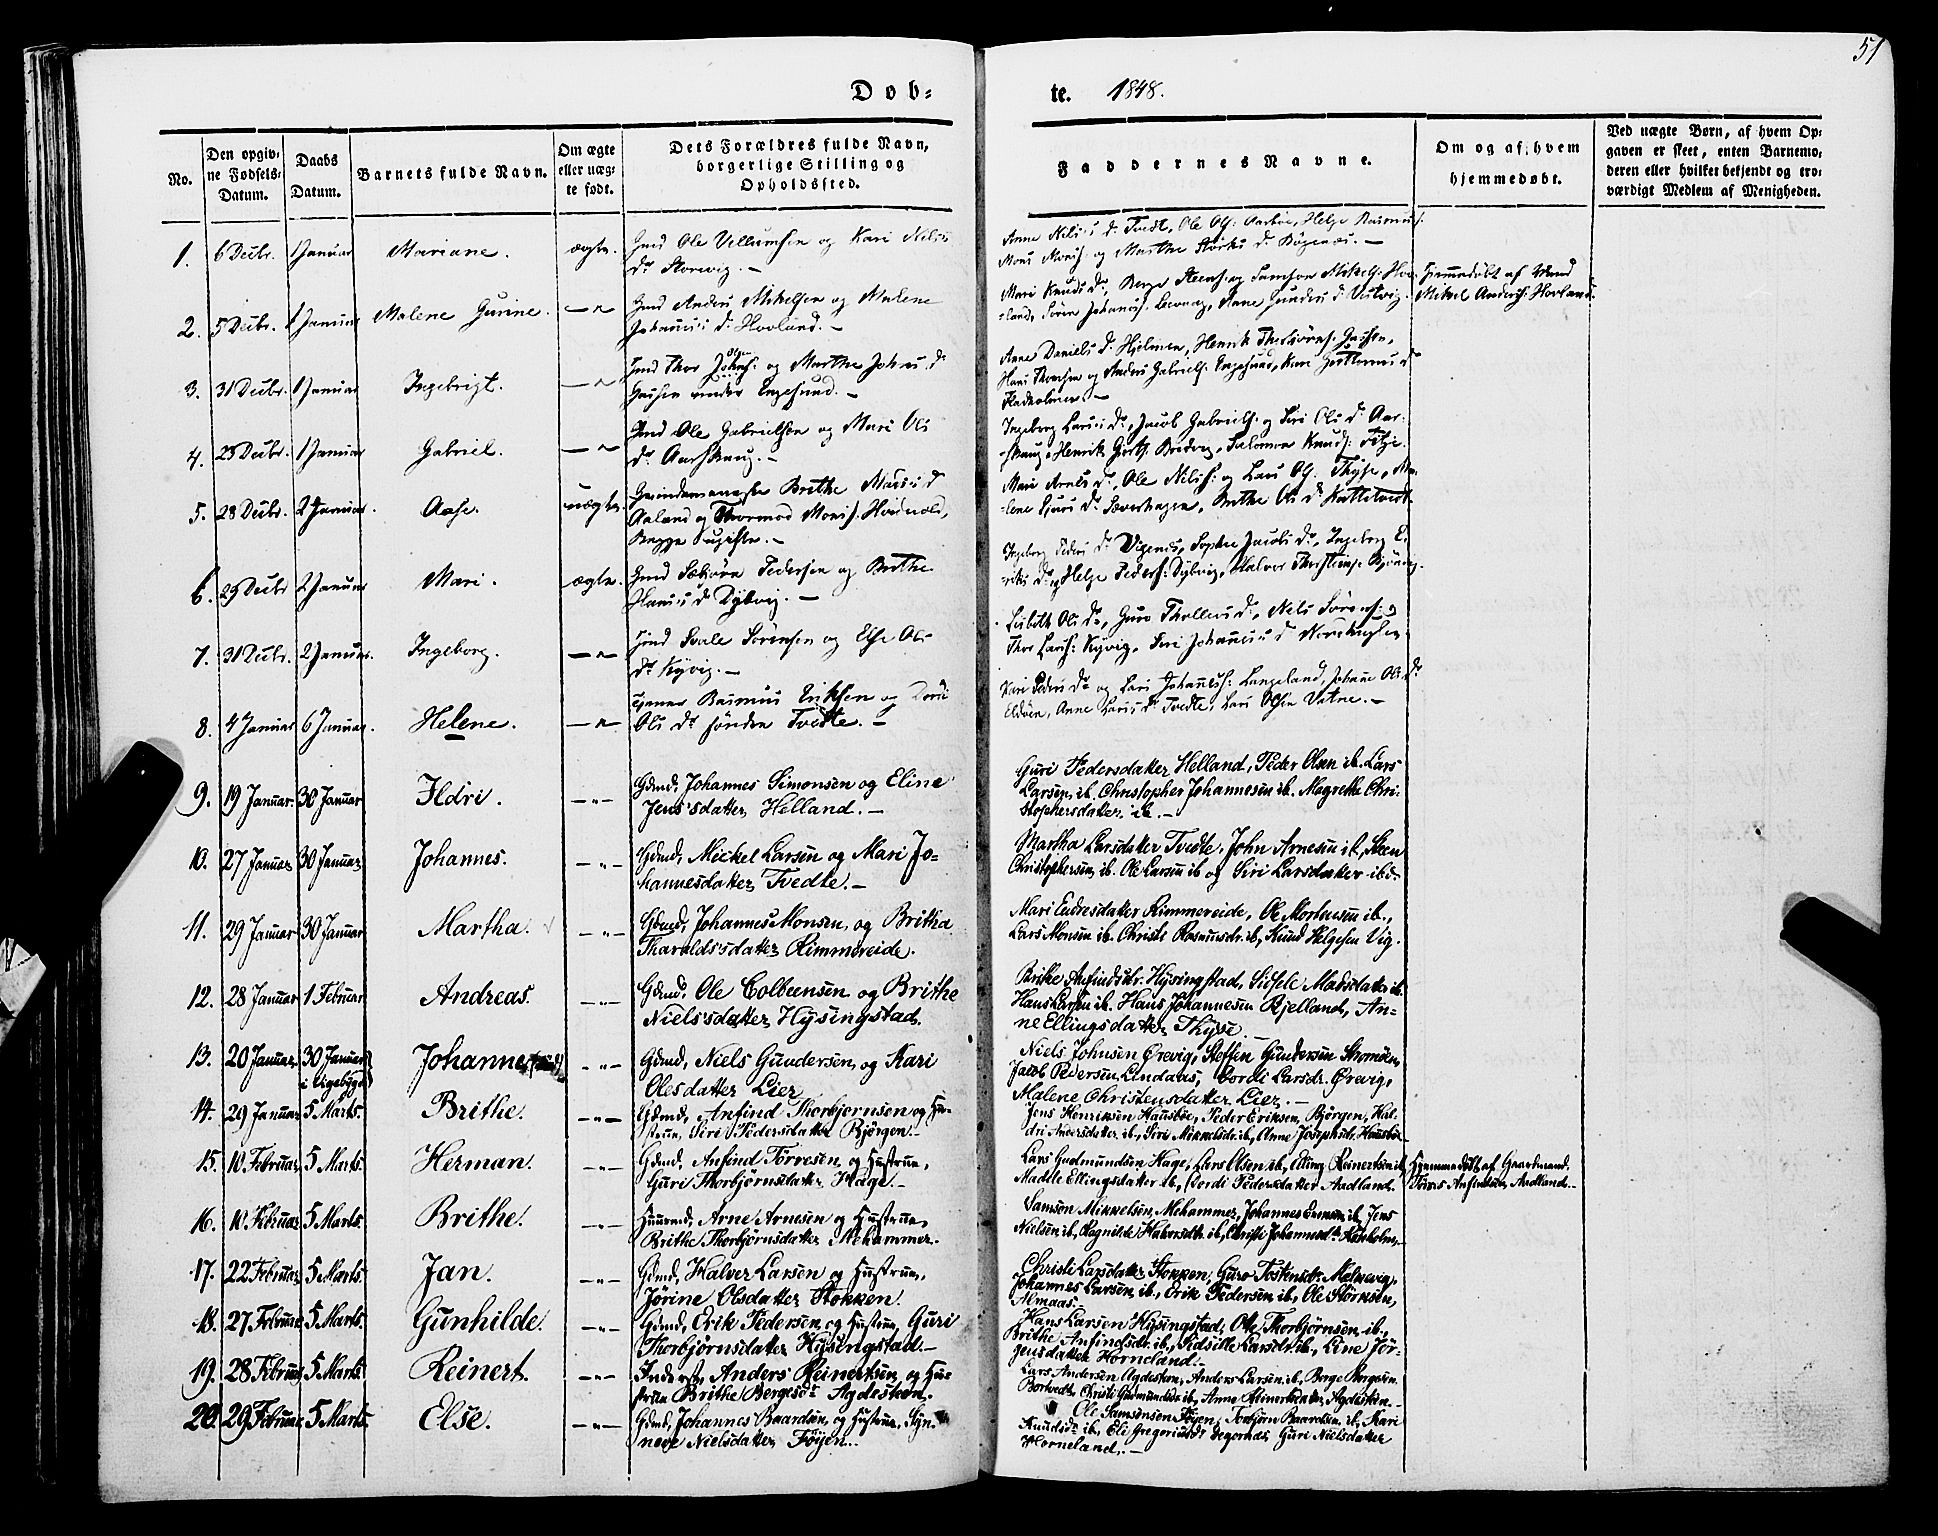 51
Dob-
te. 1848.
No.
Den opgiv-
ne Fødsels-
Datum.
Daabs
Datum.
Barnets fulde Navn.
Om ægte
eller uæg-
te født.
Dets Forældres fulde Navn,
borgerlige Stilling og
Opholdssted.
Faddernes Navne.
Om og af hvem
hjemmedøbt.
Ved uægte Børn, af hvem Op-
gaven er skeet, enten Barnemo-
deren eller hvilket bekjendt og tro-
værdigt Medlem af Menigheden.
1. 6 Decbr. 1 Januar Mariane. ægte. Gmd Ole Villumsen og Kari Nils
Dr Storevig. —
Anne Nils Dr Tvedt, Ole Ols: Aarbøe, Helge Rasmus:
og Marthe Dr Bøgenes. —
2. 5 Decbr. 1 Januar Malene Gurine. —"— Gmd Anders Mikelsen og Malene
Johannis Dr Hovland. —
Mari Knuds Dr, Berge Steens: og Samson Mikels: Hov-
land, Søren Johanes: Anne Gunders Dr Vestvig.
Hjemmedøbt af Mand
Mikel Anders: Hovland.
3. 31 Decbr. 1 Januar Ingebrigt. —"— Gmd Thor Johns: og Marthe Johns Dr
under Engesund. —
Anne Daniels Dr Hjelmen, Henrik
Hans og Anders Gabriels: Engesund, Kari Dr
Fladholmen. —
4. 23 Decbr. 1 Januar Gabriel. —"— Gmd Ole Gabrielsen og Mari Ols
Dr Aarskaug. —
Ingeborg Lars Dr, Jacob Gabriels: og Siri Ols Dr Aar-
skaug, Henrik Salomon Knuds: Fitje.
5. 28 Decbr. 2 Januar Aase. uægte. Brithe Mons Dr
Aaland og Thormod Mons: Hovdnold,
Begge ugifte. —
Mari Arnes Dr, Ole Nils: og Lars Ols: Thysse, Ma-
lene Dr Sæverhagen, Brithe Ols Dr Kattetvedt
6. 29 Decbr 2 Januar Mari. ægte. Gmd Sæbjørn Pedersen og Brithe
Hans Dr Dybvig. —
Ingeborg Peders Dr Vigenes, Sophie Jacobs Dr, Ingeborg E-
riks Dr, og Helge Peders: Dybvig, Halvor
7. 31 Decbr. 2 Januar. Ingeborg. —"— Gmd Svale Sørensen og Else Ols
Dr Kyvig. —
Lisbeth Ols Dr, Guro Thollevs Dr, Nils Sørens: og
Thor Lars: Kyvig, Siri Johannes Dr
8. 4 Januar 6 Januar. Helene. —"— Rasmus Eriksen og Dordi
Ols Dr søndre Tvedte. —
Kari Peders Dr og Lars Johannes: Langeland, Johanne Ols Dr
Eldøen, Anne Lars Dr Tvedte, Lars Olsen Vatne. —
9. 19 Januar. 30 Januar Ildri. —"— Gdmd, Johannes Simonsen og Eline
Jens'sdatter Helland. —
Guri Pedersdatter Helland, Peder Olsen ib. Lars
Larsen, ib. Christopher Johannesen ib. Magrethe Chri-
stophersdatter, ib. —
10. 27 Januar 30 Januar Johannes. —"— Gdmd, Mickel Larsen og Mari Jo-
hannesdatter Tvedte. —
Martha Larsdatter Tvedte, John Arnesen ib, Steen
Christophersen, ib. Ole Larsen ib og Siri Larsdatter ibd.
11. 29 Januar 30 Januar Martha. —"— Gdmd, Johannes Monsen, og Britha
Tharalds'sdatter Rimmereide.
Mari Endresdatter Rimmereide, Ole Mortensen ib.,
Lars Monsen ib. Christi Rasmusdr. ib, Knud Helgesen Vig.
12. 28 Januar 1 Februar Andreas. —"— Gdmd. Ole Colbeensen og Brithe
Niels'sdatter Hysingstad.
Brithe Anfindsdr. Hysingstad, Sidsele Madsdatter ib.
Hans Larsen ib. Hans Johannesen Kjelland, An-
ne Ellingsdatter Thysse. —
13. 20 Januar 30 Januar
i Ligebygd Johannes —"— Gdmd, Niels Gundersen, og Kari
Olesdatter Lier.
Niels Johnsen Ørevig, Steffen Gundersen Stromøen,
Jacob Pedersen Lindaas, Dordi Larsdr. Ørevig,
Malene Christensdatter Lier. —
14. 29 Januar 5 Marts. Brithe. —"— Gdmd, Anfind Thorbjørnsen og Hu-
strue, Siri Pedersdatter Bjørgen. —
Jens Henriksen Huusbøe, Peder Eriksen, Bjørgen, Hal-
dri Andersdatter ib., Siri Mikkelsdr. ib., Anne Josephsdr. Huusbøe —
15. 10 Februar 5 Marts. Herman. —"— Gdmd, Anfind Tørresen, og Hustrue,
Guri Thorbjørnsdatter Hage. —
Lars Gudmundsen Hage, Lars Olsen ib., Elling Reinertsen ib.,
Madele Ellingsdatter ib., Dordi Pedersdatter Aadland.
Hjemmedøbt af Gaardmand
Tørres Anfindsen, Aadland. —
16. 10 Februar 5 Marts. Brithe. —"— Huusmd, Arne Arnesen og Hustrue,
Brithe Thorbjørnsdatter Mehammer.
Samson Mikkelsen, Mehammer, Johannes ib, Jens
Nielsen ib., Ragnilde Halvorsdtr ib., Christi Johannesdtr
17. 22 Februar 5 Marts. Jan. —"— Gdmd, Halver Larsen og Hustrue,
Jørine Olsdatter Stokken.
Christi Larsdatter Stokken, Guro Tostensdr. Malkevig,
Johannes Larsen ib., Erik Pedersen ib., Ole Størksen,
Almaas.
18. 27 Februar 5 Marts. Gunhilde. —"— Gdmd, Erik Pedersen, og Hustrue, Guri
Thorbjørnsdatter Hysingstad. —
Hans Larsen Hysingstad, Ole Thorbjørnsen ib.,
Brithe Anfindsdr. ib., Sidselle Larsdr. ib., Line Jør-
gensdatter Horneland. —
19. 28 Februar 5 Marts. Reinert. —"— Inderst, Anders Reinertsen, og Hu-
strue Brithe Bergesdr Agdesteen.
Lars Andersen Agdesteen, Anders Larsen ib., Berge Bergesen
Bortvedt, Christi Gudmundsdr ib., Anne Reinertsdatter, Agdesteen. —
20. 29 Februar 5 Marts. Else. —"— Gdmd, Johannes Baardsen, og Hustrue, Syn-
neve Nielsdatter, Føyen. —
Ole Samsonsen Føyen, Torbjørn Baardsen ib., Kari
Knudsdr ib., Eli Gregoriusdr Guri Nielsdatter
Horneland. —